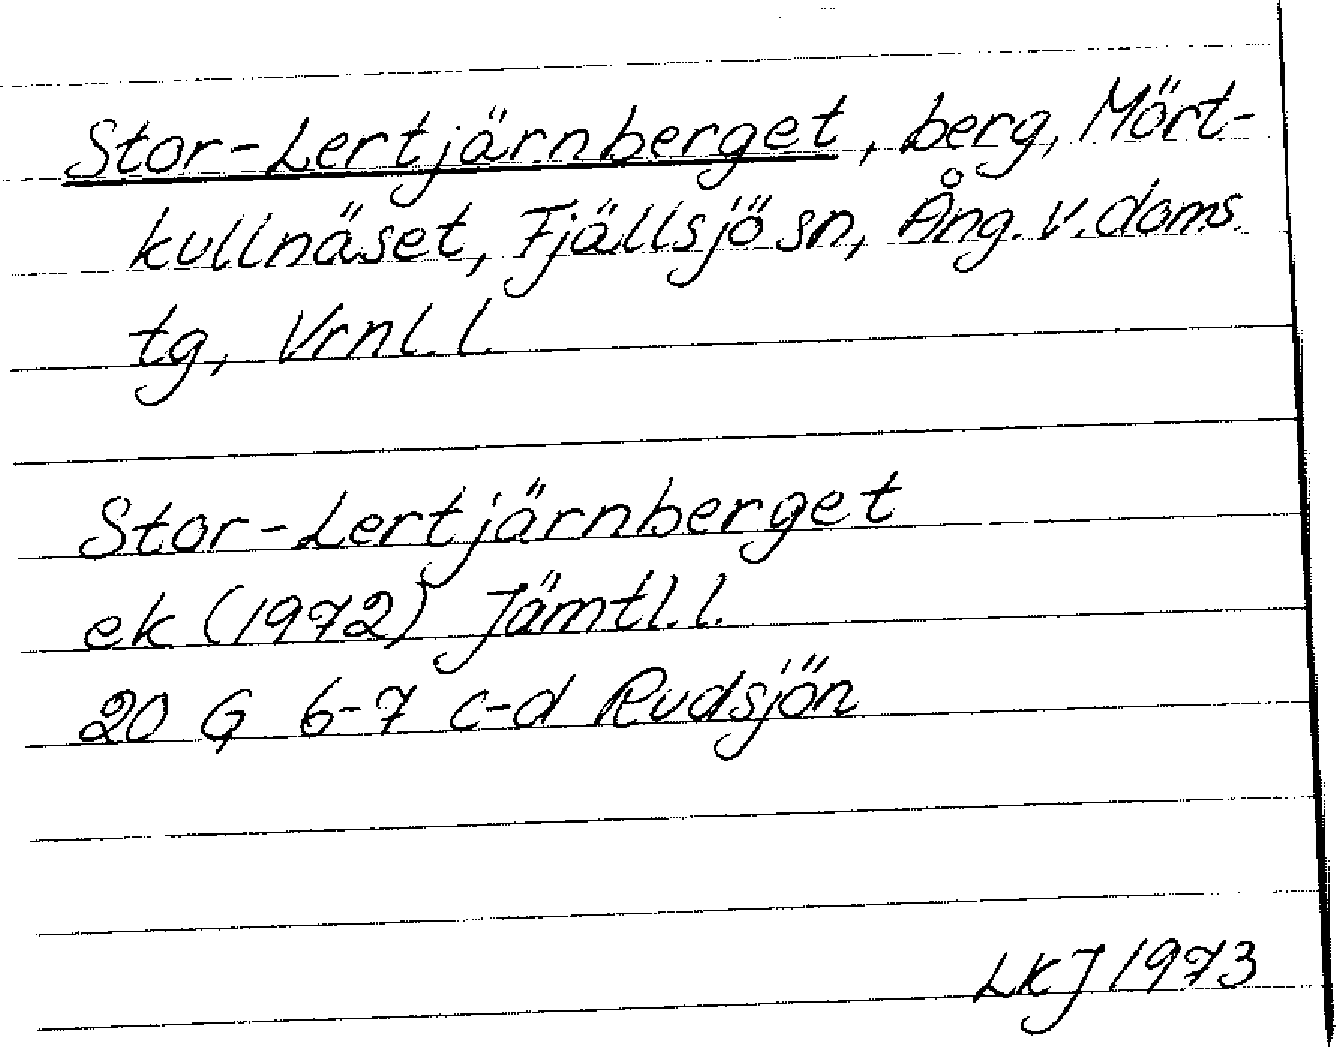 Stor-Lertjärnberget, berg, Mört-
kullnäset, Fjällsjö sn, Ång. v. doms.
tg, Vrnl. l.
Stor-Lertjärnberget
ek (1972) Jämtl. l.
20 G 6-7 c-d Rudsjön
LKJ 1973